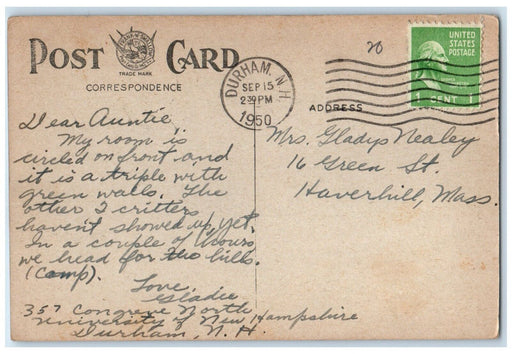 POST CARD
TRADE MARK
CORRESPONDENCE
ADDRESS
20
UNITED
STATES
POSTAGE
1 CENT 1
DURHAM, N.H.
SEP 15
2 30 PM
1950
Dear Auntie,
My room is
circled on front and
it is a triple with
green walls. The
other 2 critters
haven't showed up, yet.
In a couple of hours
we head for the hills.
(Camp).
Love,
Gladie
357 Congreve North
University of New Hampshire
Durham, N. H.
Mrs. Gladys Nealey
16 Green St.
Haverhill, Mass.